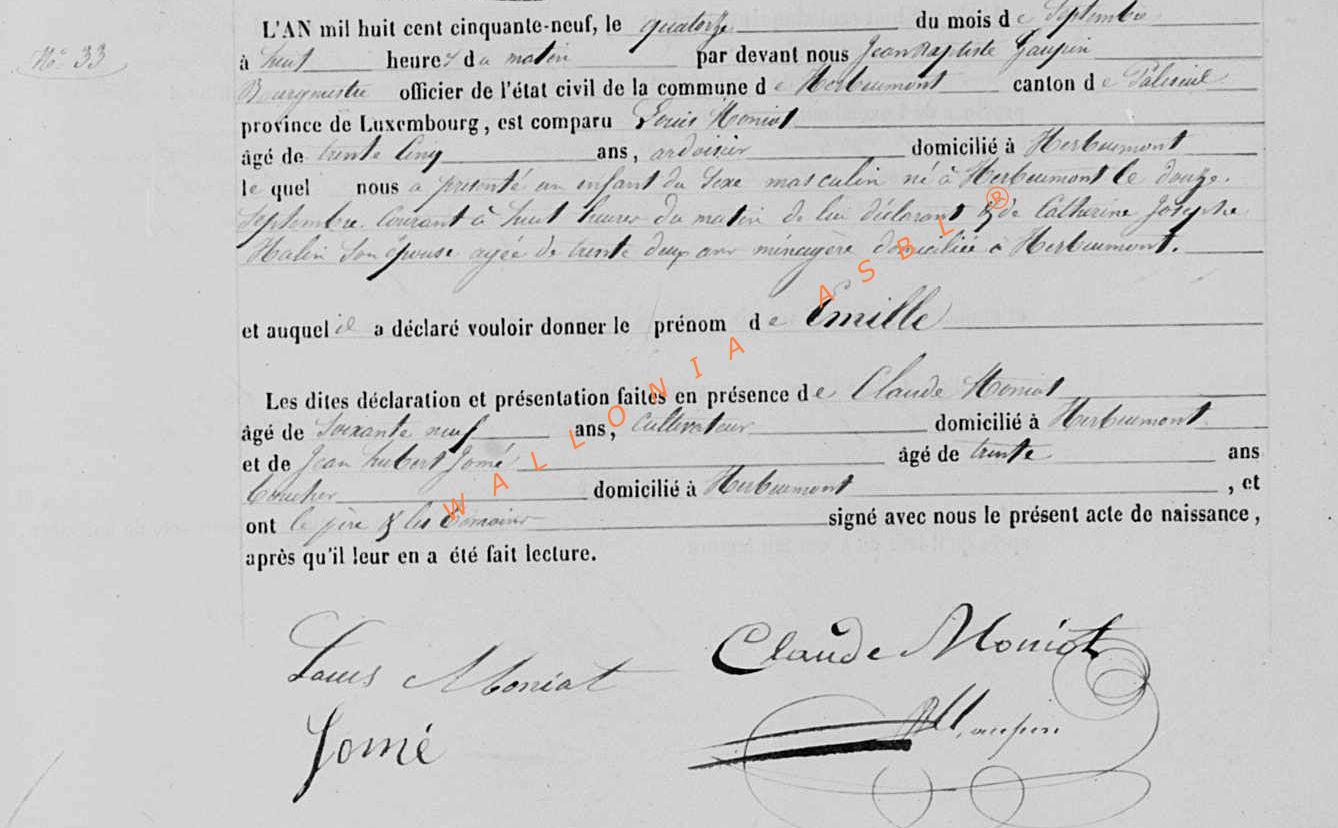 N° 33
L'AN mil huit cent cinquante-neuf, le quatorze du mois de Septembre
à huit heures du matin par devant nous Jean Baptiste
Bourgmestre officier de l'état civil de la commune de Herbeumont canton de Paliseul
province de Luxembourg, est comparu Louis Moniot
âgé de trente Cinq ans, ardoisier domicilié à Herbeumont
le quel nous a présenté un enfant du Sexe masculin né à Herbeumont le douze
Septembre Courant à huit heures du matin de lui déclarant & de Catherine Josephe
Halin Son épouse agée de trente deux ans ménagère domiciliée à Herbeumont.
et auquel il a déclaré vouloir donner le prénom de Emille
Les dites déclaration et présentation faites en présence de Claude Moniot
âgé de Soixante neuf ans, Cultivateur domicilié à Herbeumont
et de Jean hubert Jomé âgé de trente ans
domicilié à Herbeumont, et
ont le père & les témoins signé avec nous le présent acte de naissance,
après qu'il leur en a été fait lecture.
Louis Moniot
Claude Moniot
Jomé
WALLONIA ASBL ®